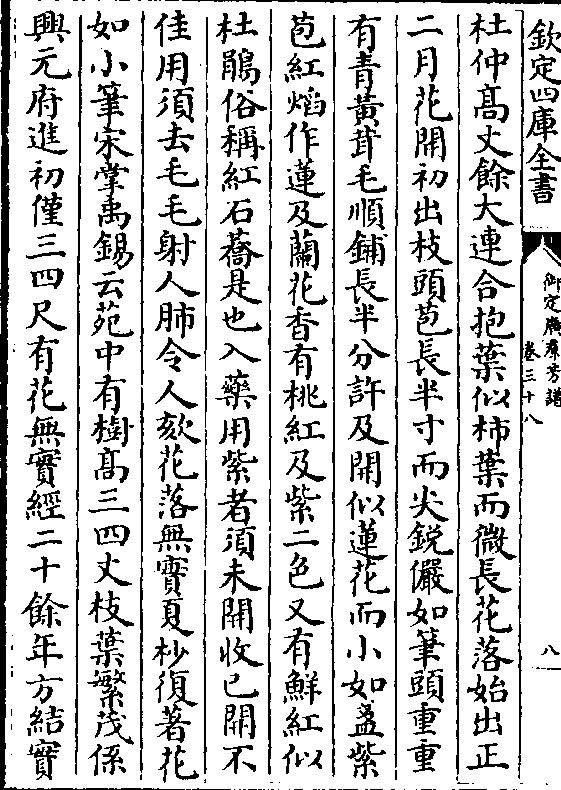 欽定四庫全書
御定廣羣芳譜
卷三十八
八
杜仲髙丈餘大連合抱葉似柿葉而微長花落始出正
二月花開初出枝頭苞長半寸而尖銳儼如筆頭重重
有青黃茸毛順鋪長半分許及開似蓮花而小如盞紫
苞紅焰作蓮及蘭花香有桃紅及紫二色又有鮮紅似
杜鵑俗稱紅石蕎是也入藥用紫者須未開收已開不
佳用須去毛毛射人肺令人欬花落無實夏杪復著花
如小筆宋掌禹錫云苑中有樹髙三四丈枝葉繁茂係
興元府進初僅三四尺有花無實經二十餘年方結實